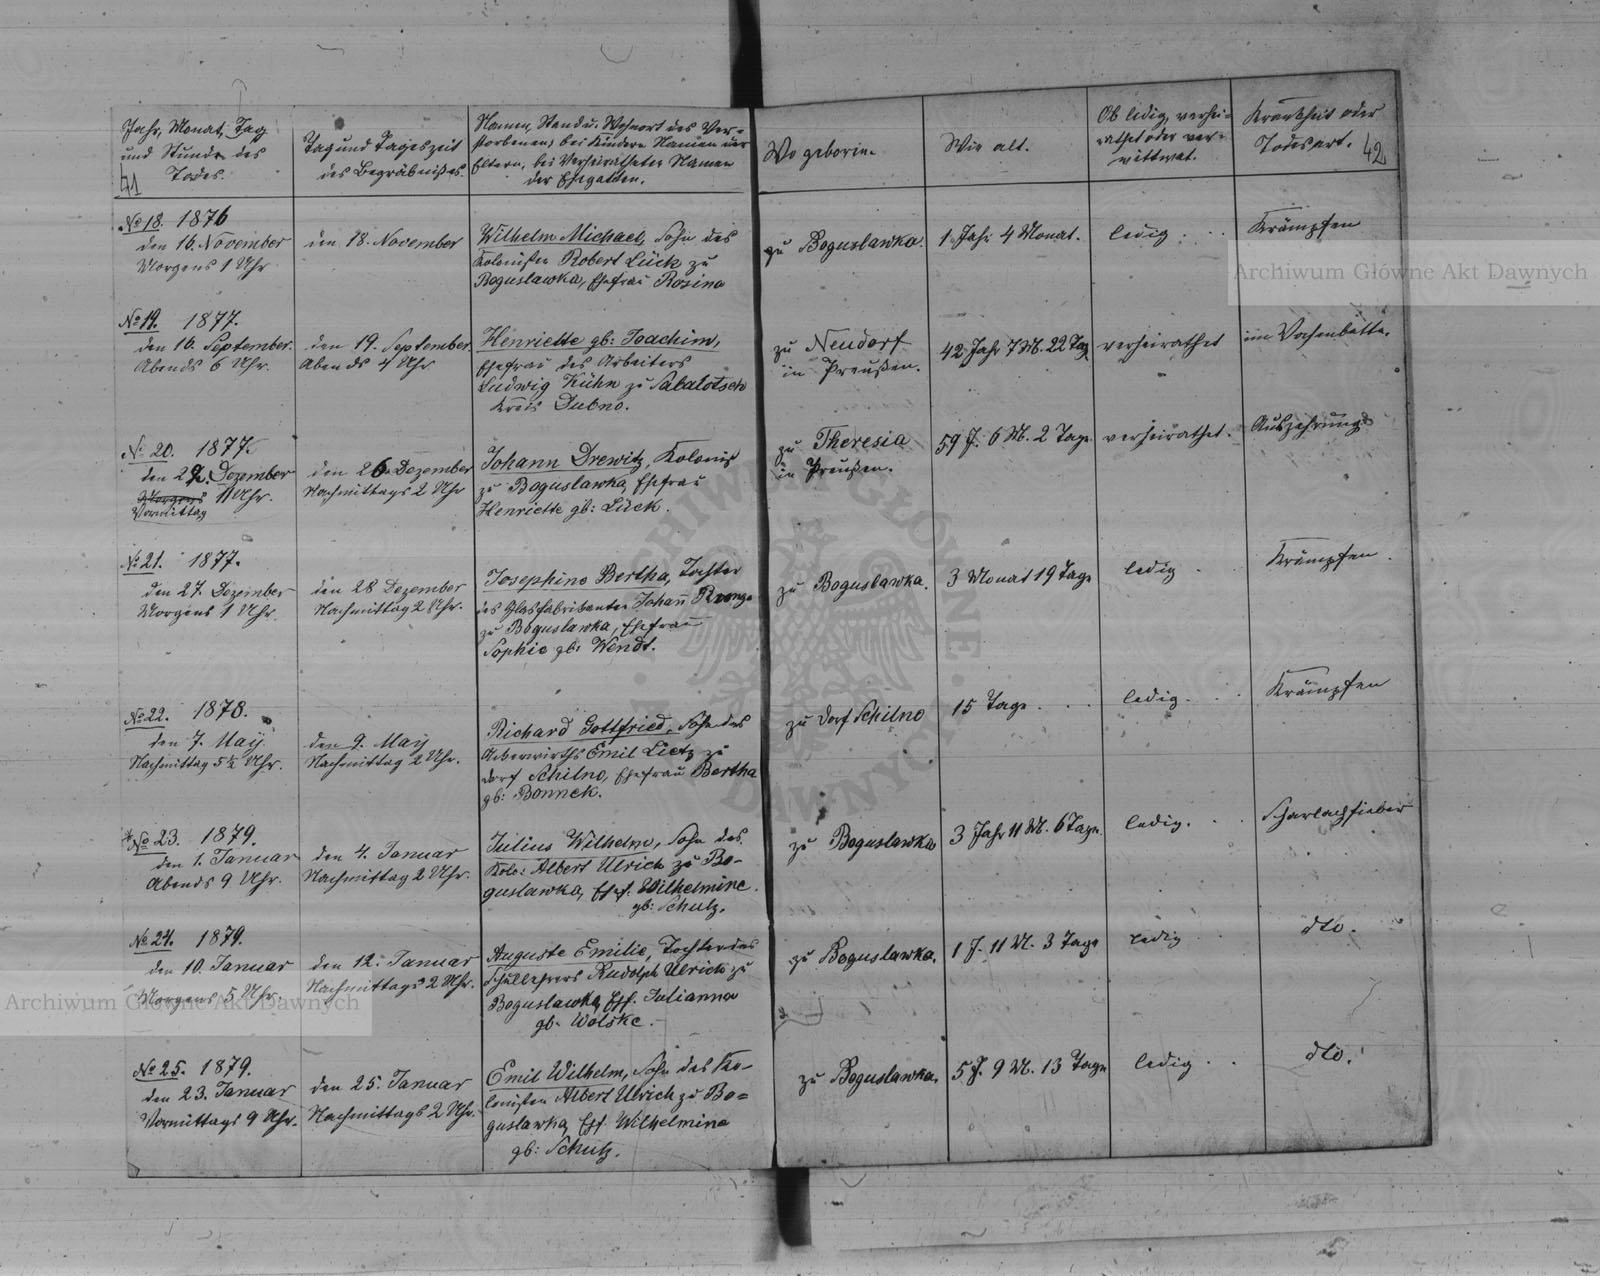 Jahr, Monat, Tag
und Stunde des
Todes.
41
Tag und Tageszeit
des Begräbnißes.
Namen, Stand u. Wohnort des Ver-
storbenen, bei Kindern Namen der
Eltern, bei Verheiratheten Namen
der Ehegatten.
Wo geboren.
Wie alt.
Ob ledig, verhei-
rathet oder ver-
wittwet.
Krankheit oder
Todesart.
42
No 18. 1876
den 16. November
Morgens 1 Uhr
den 18. November
Wilhelm Michael, Sohn des
Kolonisten Robert Lück zu
Boguslawka, Ehefrau Rosina
zu Boguslawka.
1 Jahr 4 Monat.
ledig.
Krämpfen
No 19. 1877.
den 16. September.
Abends 6 Uhr.
den 19. September
Abends 4 Uhr
Henriette gb: Joachim,
Ehefrau des Arbeiters
Ludwig Kühn zu Sabalotsch
Kreis Dubno.
zu Neudorf
in Preußen.
42 Jahr 7 M. 22 Tag
verheirathet
im Wochenbette.
No 20. 1877.
den 22. Dezember
Morgens 11 Uhr.
Vormittag
den 26. Dezember
Nachmittags 2 Uhr
Johann Drewitz, Kolonist
zu Boguslawka, Ehefrau
Henriette gb: Lück.
zu Theresia
in Preußen.
59 J. 6 M. 2 Tage
verheirathet.
Auszehrung
No 21. 1877.
den 27. Dezember
Morgens 1 Uhr.
den 28 Dezember
Nachmittag 2 Uhr.
Josephine Bertha, Tochter
des Glasfabrikanten Johann
zu Boguslawka, Ehefrau
Sophie gb: Wendt.
zu Boguslawka.
3 Monat 19 Tage
ledig
Krämpfen.
No 22. 1878.
den 7. May
Nachmittag 5½ Uhr.
den 9. May
Nachmittag 2 Uhr.
Richard Gottfried, Sohn des
Ackerwirths Emil Lietz zu
dorf Schilno, Ehefrau Bertha
gb: Bonnek.
zu dorf Schilno
15 Tage.
ledig.
Krämpfen
No 23. 1879.
den 1. Januar
Abends 9 Uhr.
den 4. Januar
Nachmittag 2 Uhr.
Julius Wilhelm, Sohn des
Kolo: Albert Ulrich zu Bo-
guslawka, Ehef. Wilhelmine
gb: Schulz.
zu Boguslawka
3 Jahr 11 M. 6 Tage.
ledig.
Scharlachfieber
No 24. 1879.
den 10. Januar
Morgens 5 Uhr.
den 12. Januar
Nachmittags 2 Uhr.
Auguste Emilie, Tochter des
Schullehrers Rudolph Ulrich zu
Boguslawka, Ehf. Julianna
gb. Wolske.
zu Boguslawka.
1 J. 11 M. 3 Tage
ledig
dto.
No 25. 1879.
den 23. Januar
Vormittags 9 Uhr.
den 25. Januar
Nachmittags 2 Uhr.
Emil Wilhelm, Sohn des Ko-
lonisten Albert Ulrich zu Bo=
guslawka, Ehf. Wilhelmine
gb: Schulz.
zu Boguslawka.
5 J. 9 M. 13 Tage
ledig.
dto.
Archiwum Główne Akt Dawnych
Archiwum Główne Akt Dawnych
ARCHIWUM GŁÓWNE
AKT DAWNYCH